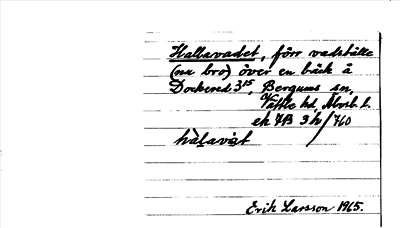 Hallavadet, förr vadställe
(nu bro) över en bäck å
Dockered 3¹⁵, Bergums sn,
Vättle hd, Älvsb. l.
ek 7B 3h/760
hàlavàt
Erik Larsson 1965.